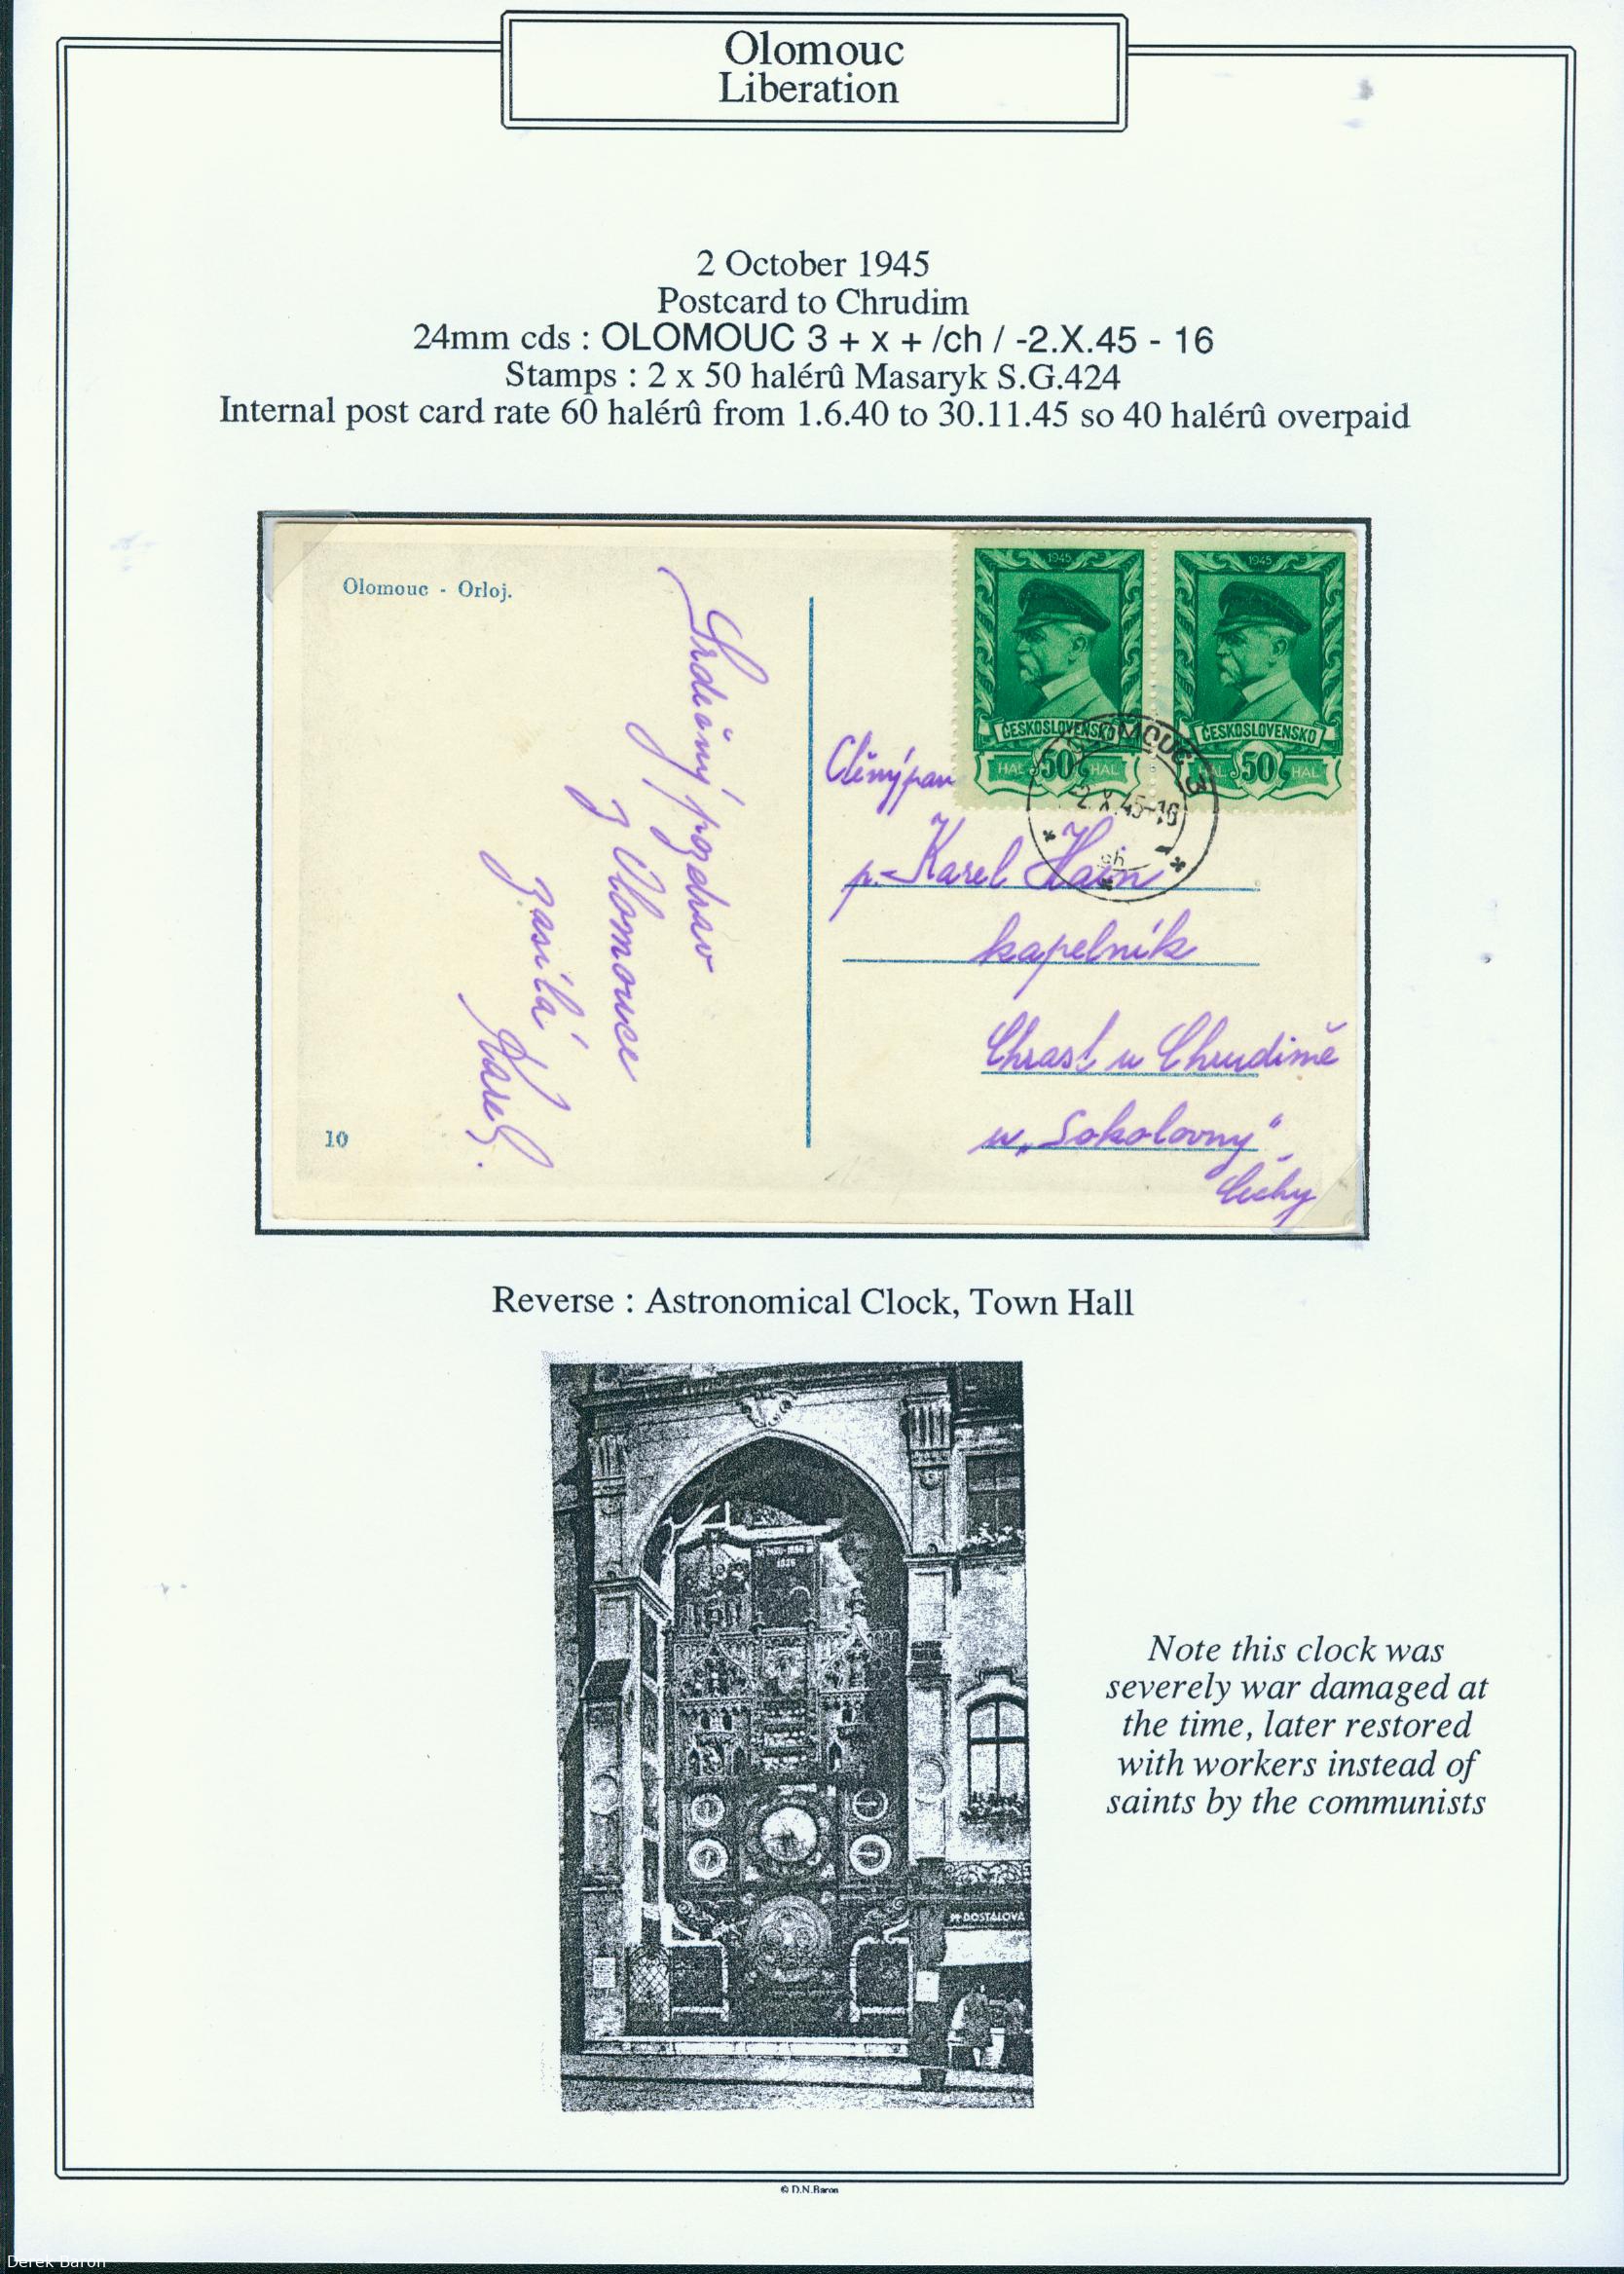 Olomouc
Liberation
2 October 1945
Postcard to Chrudim
24mm cds : OLOMOUC 3 + x + /ch / -2.X.45 - 16
Stamps : 2 x 50 halérû Masaryk S.G.424
Internal post card rate 60 halérû from 1.6.40 to 30.11.45 so 40 halérû overpaid
Olomouc - Orloj.
Srdečný pozdrav
z Olomouce
zasílá
Karel.
10
1945
ČESKOSLOVENSKO
HAL 50 HAL
1945
ČESKOSLOVENSKO
HAL 50 HAL
OLOMOUC 3
-2.X.45-16
ch
p. Karel Hain
kapelník
Chrast u Chrudimě
u „Sokolovny"
Čechy
Reverse : Astronomical Clock, Town Hall
DOSTÁLOVÁ
Note this clock was
severely war damaged at
the time, later restored
with workers instead of
saints by the communists
© D.N.Baron
Derek Baron